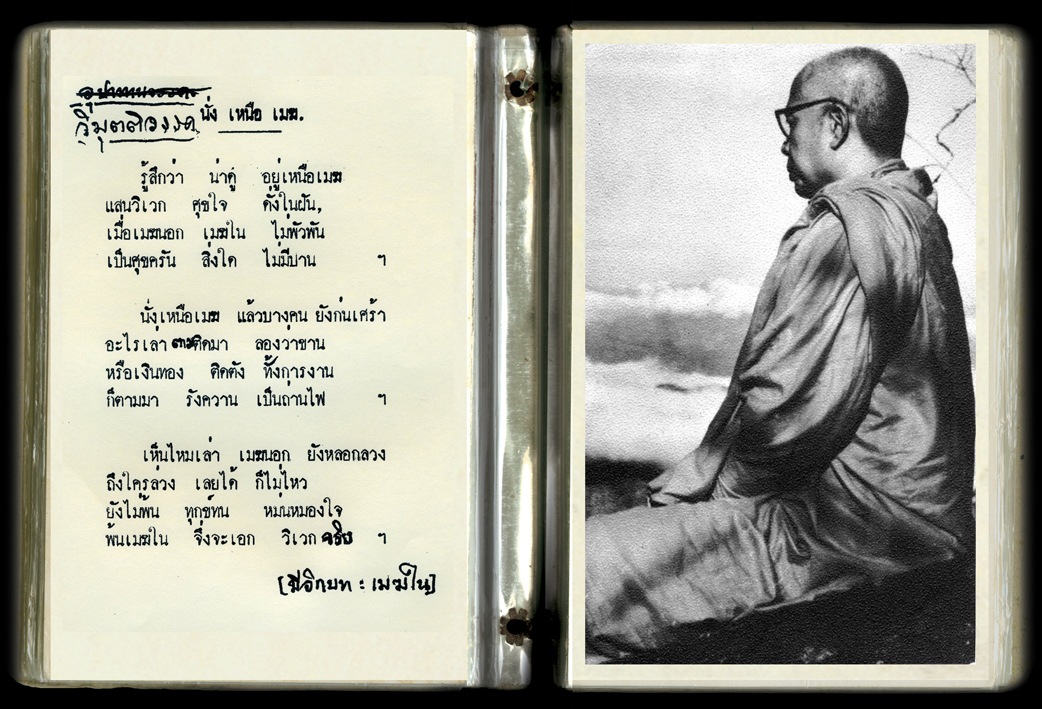 วิมุตติวรรค
นั่ง เหนือ เมฆ.
รู้สึกว่า น่าดู อยู่เหนือเมฆ
แสนวิเวก ศุขใจ ดั่งในฝัน,
เมื่อเมฆนอก เมฆใน ไม่พัวพัน
เป็นศุขครัน สิ่งใด ไม่มีปาน ฯ
นั่งเหนือเมฆ แล้วบางคน ยังก่นเศร้า
อะไรเล่า ติดมา ลองว่าขาน
หรือเงินทอง ติดตัง ทั้งการงาน
ก็ตามมา รังควาน เป็นถ่านไฟ ฯ
เห็นไหมเล่า เมฆนอก ยังหลอกลวง
ถึงใครล่วง เลยได้ ก็ไม่ไหว
ยังไม่พ้น ทุกข์ทน หม่นหมองใจ
พ้นเมฆใน จึ่งจะเอก วิเวกจริง ฯ
[มีอีกบท : เมฆใน]